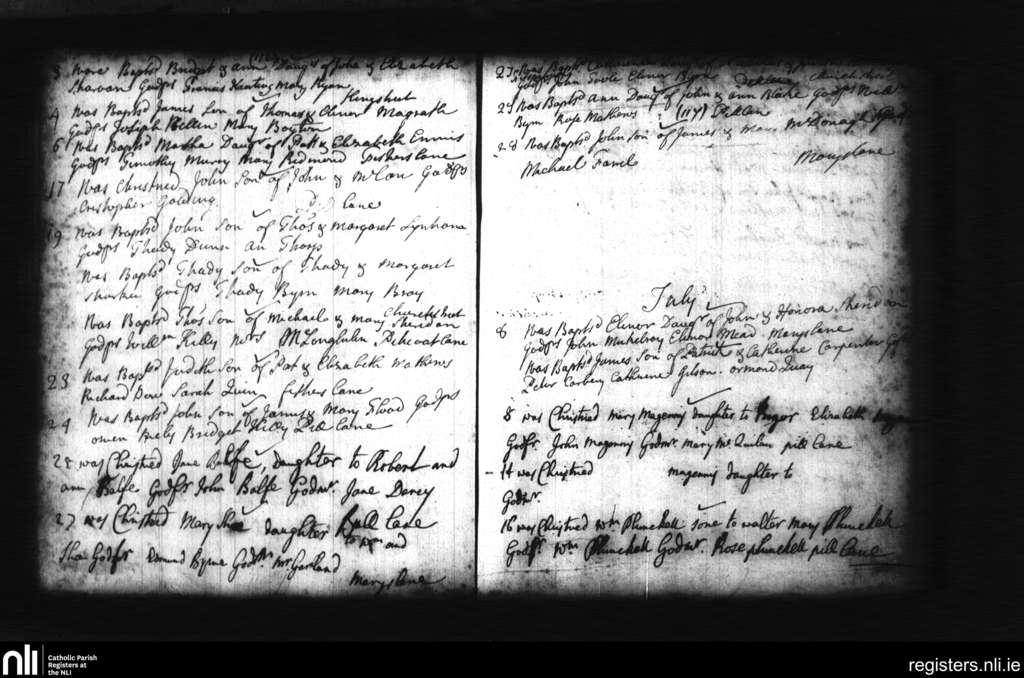 3 Were Bapts'd Bridget & ann Daug's of John & Elizabeth
Godfs Francis Mary Ryan
Kingstreet
4 Was Bapts'd James Son of Thomas & Elinor Magrath
Godfs Joseph Mary Boylan
6 Was Bapts'd Martha Daug'r of Patt & Elizabeth Ennis
Godfs Timothy Murry Mary Redmond Fishers lane
17 Was Christned John Son of John & Godfs
Cristopher Golding Lane
19 Was Bapts'd John Son of Thos & Margaret
Godfs Thady Dunn An
Was Bapts'd Thady Son of Thady & Margaret
Godfs Thady Byrn Mary Bray
Churchstreet
Was Bapts'd Thos Son of Michael & Mary Sheridan
Godfs Will'm Kelly Mrs McLoughlin Petticoat Lane
23 Was Bapts'd Judith Son of Pat & Elizabeth Mathews
Richard Dow Sarah Quin Fishers Lane
24 Was Bapts'd John Son of James & Mary Godfs
owen Bridget Kelly Pill Lane
25 was Christned Jane Balfe, Daughter to Robert and
ann Balfe Godfr John Balfe Godmr. Jane Darcy
pill Lane
27 was Christned Mary Shea daughter to and
Shea Godfr Edmund Byrne Godmr. Mrs Garland
Marys lane
27 Was Bapts'd
Godfs John Toole Elinor Byrne Church street
25 Was Bapts'd Ann Daug'r of John & ann Blake Godfs
Byrn Rose Mathews (117) Pill Lan
28 Was Bapts'd John Son of James & Mary McDonagh
Michael Farrel Maryslane
July
8 Was Bapts'd Elinor Daug'r of John & Honora Sheridan
Godfs John Elinor Mead Maryslane
Was Bapts'd James Son of Patrick & Catherine Carpenter
Peter Corbey Catherine Gilson. ormond Quay
8 was Christned Mary Magenny daughter to Roger Elizabeth
Godfr. John Magenny Godmr. Mary Mc Quilan pill Lane
14 was Christned magennis daughter to
Godmr.
16 was Christned Wm Plunckett sone to walter Mary Plunckett
Godfr. Wm Plunckett Godmr. Rose plunckett pill Lane
nli
Catholic Parish
Registers at
the NLI
registers.nli.ie